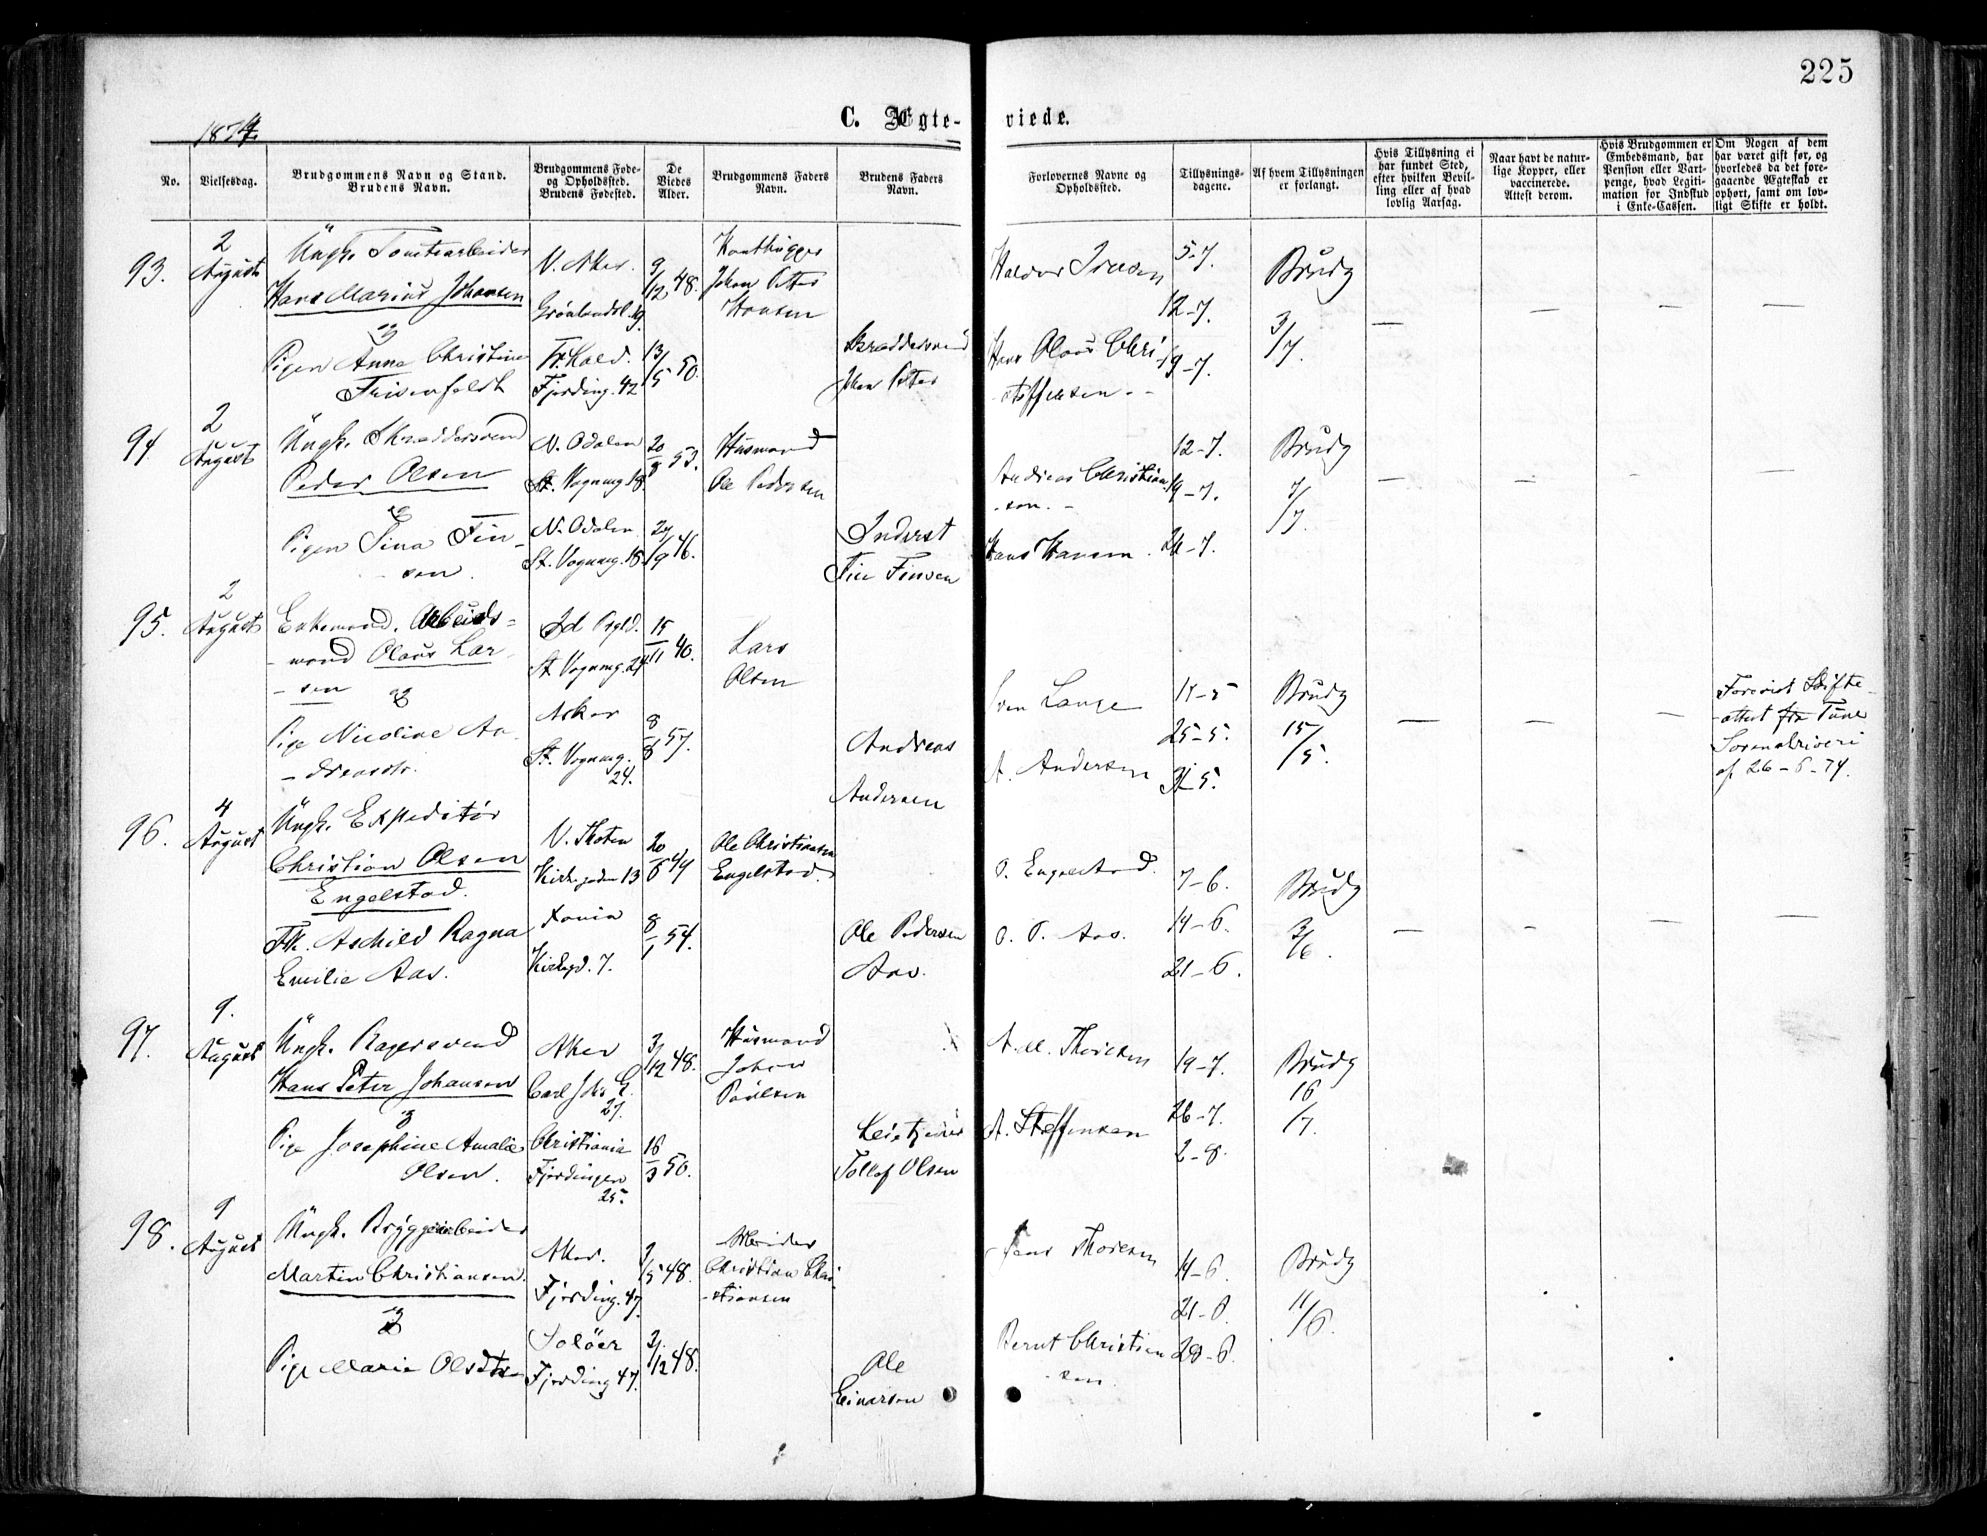 225
1874.
C. Ægteviede.
No.
Vielsesdag.
Brudgommens Navn og Stand.
Brudens Navn.
Brudgommens Føde-
og Opholdssted.
Brudens Fødested.
De
Viedes
Alder.
Brudgommens Faders
Navn.
Brudens Faders
Navn.
Forlovernes Navne og
Opholdssted.
Tillysnings-
dagene.
Af hvem Tillysningen
er forlangt.
Hvis Tillysning ei
har fundet Sted,
efter hvilken Bevil-
ling eller af hvad
lovlig Aarsag.
Naar havt de natur-
lige Kopper, eller
vaccinerede.
Attest derom.
Hvis Brudgommen er
Embedsmand, har
Pension eller Vart-
penge, hvad Legiti-
mation for Indskud
i Enke-Cassen.
Om Nogen af dem
har været gift før, og
hvorledes da det fore-
gaaende Ægteskab er
ophørt, samt om lov-
ligt Skifte er holdt.
93.
2
August
Ungk. Tomtearbeider
Hans Marius Johansen
og
Pigen Anna Christine
V. Aker.
Grønlandsl. 19.
Fjerding. 42
9/12 48.
13/5 50.
Johan Petter
Hansen
Johan Petter
Hans Olaus Chri
stoffersen
5-7.
12-7.
19-7.
Brudg
3/7.
94
2
August
Ungk. Skræddersvend
Peder Olsen
og
Pigen Tina Fin-
sen.
N. Odalen
St. Vognmg. 18.
N. Odalen
St. Vognmg. 18.
20/8 53.
27/9 46.
Husmand
Ole Pedersen
Inderst
Fin Finsen
Andreas Christian
sen.
Hans Hansen.
12-7.
19-7.
26-7.
Brudg
7/7.
95.
2
August
Enkemand. Arbeids-
mand Olaus Lar-
sen
og
Pige Nicoline An-
dreasdtr.
St. Vognmg. 24
Asker
St. Vognmg.
24.
15/11 40.
8/8 57.
Lars
Olsen
Andreas
Andersen
Sven Lange
A. Andersen
25-5.
31-5.
Brudg
15/5.
Forevist Skifte-
attest fra Tune
Sorenskriveri
af 26-6-74.
96.
4
August
Ungk. Expeditør
Christian Olsen
Engelstad.
Frk. Aschild Ragna
Emilie Aas.
V. Thoten
Kirkegaden 13
Xania
Kirkegd. 7.
20/6 44
8/1 54.
Ole Christiansen
Engelstad.
Ole Pedersen
Aas.
O. Engelstad.
O. P. Aas.
7-6.
14-6.
21-6.
Brudg
3/6.
97.
9.
August
Ungk. Bagersvend
Hans Peter Johansen
og
Pige Josephine Amalie
Olsen.
Aker
27.
Christiania
Fjerdingen
25.
3/12 48.
16/3 50.
Husmand
Johan
Paulsen
Tollef Olsen
A. M. Thoresen
A. Steffensen
19-7.
26-7.
2-8.
Brudg
16/7.
98.
9
August
Ungk. Bryggearbeider
Martin Christiansen.
og
Pige Marie Olsdtr
Aker.
Fjerding. 47.
Soløer
Fjerding 47.
48.
2/12 48.
Arbeider
Christian Chri
stiansen
Ole
Einarsen
Thoresen
Bernt Christian
sen.
14-6.
21-6.
28-6.
Brudg
11/6.